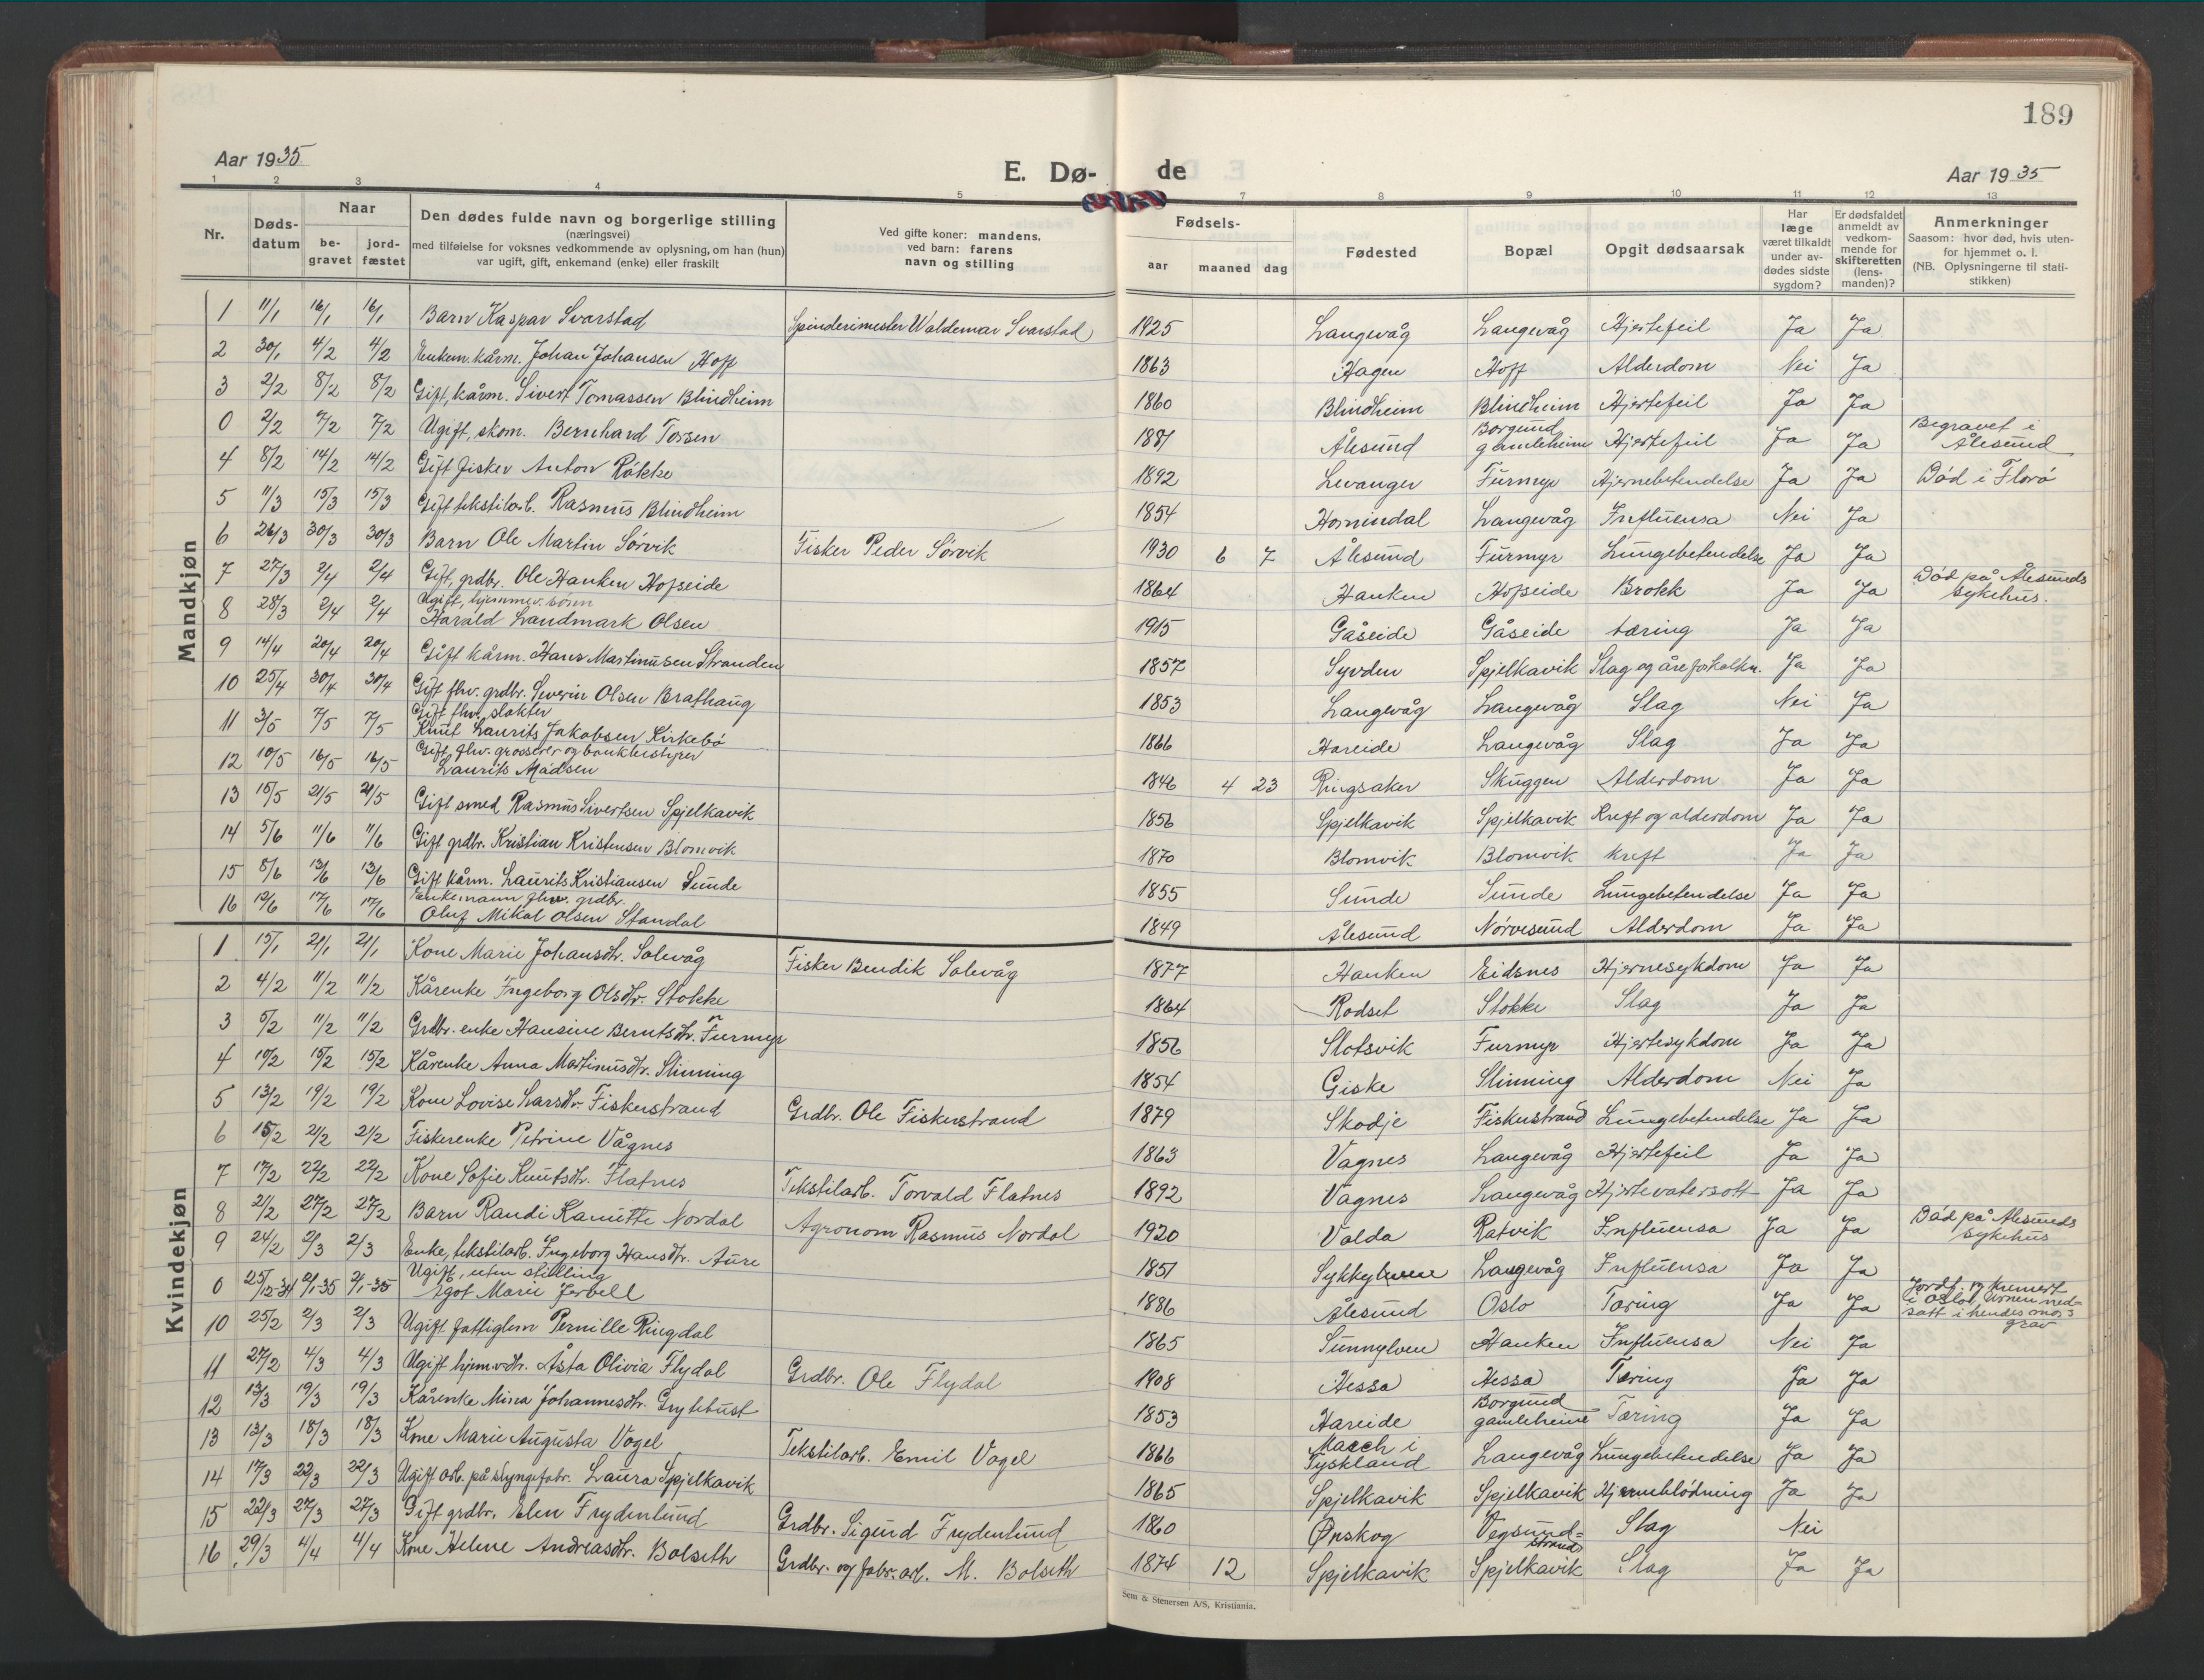 189
Aar 1935
E. Dø- de
Aar 1935
1 2 3 4 5 7 8 9 10 11 12 13
Nr.
Døds-datum
Naar
be-gravet
jord-fæstet
Den dødes fulde navn og borgerlige stilling
(næringsvei)
med tilføielse for voksnes vedkommende av oplysning, om han (hun)
var ugift, gift, enkemand (enke) eller fraskilt
Ved gifte koner: mandens,
ved barn: farens
navn og stilling
Fødsels-
aar maaned dag
Fødested
Bopæl
Opgit dødsaarsak
Har
læge
været tilkaldt
under av-
dødes sidste
sygdom?
Er dødsfaldet
anmeldt av
vedkom-
mende for
skifteretten
(lens-
manden)?
Anmerkninger
Saasom: hvor død, hvis uten-
for hjemmet o. l.
(NB. Oplysningerne til stati-
stikken)
Mandkjøn
1 11/1 16/1 16/1 Barn Kaspar Svarstad Spinderimester Waldemar Svarstad 1925 Langevåg Langevåg Hjertefeil Ja Ja
2 30/1 4/2 4/2 Enkem. kårm. Johan Johansen Hoff 1863 Hagen Hoff Alderdom Nei Ja
3 2/2 8/2 8/2 Gift, kårm. Sivert Tomassen Blindheim 1860 Blindheim Blindheim Hjertefeil Ja Ja
0 2/2 7/2 7/2 Ugift, skom. Bernhard Torsen 1881 Ålesund Borgund gamleheim Hjertefeil Ja Ja Begravet i Ålesund
4 8/2 14/2 14/2 Gift fisker Anton Røkke 1892 Levanger Furmyr Hjernebetendelse Ja Ja Død i Florø
5 11/3 15/3 15/3 Gift tekstilarb. Rasmus Blindheim 1854 Hornindal Langevåg Influensa Nei Ja
6 26/3 30/3 30/3 Barn Ole Martin Sørvik Fisker Peder Sørvik 1930 6 7 Ålesund Furmyr Lungebetendelse Ja Ja
7 27/3 2/4 2/4 Gift, grdbr. Ole Hanken Hofseide 1864 Hanken Hofseide Brokk Ja Ja Død på Ålesunds sykehus.
8 28/3 2/4 2/4 Ugift, hjemmev. sønn Harald Landmark Olsen 1915 Gåseide Gåseide tæring Ja Ja
9 14/4 20/4 20/4 Gift kårm. Hans Martinusen Stranden 1857 Syvden Spjelkavik Slag og åreforkalkn. Ja Ja
10 25/4 30/4 30/4 Gift fhv. grdbr. Severin Olsen Brathaug 1853 Langevåg Langevåg Slag Nei Ja
11 3/5 7/5 7/5 Gift fhv. slakter Knut Laurits Jakobsen Kirkebø 1866 Hareide Langevåg Slag Ja Ja
12 10/5 16/5 16/5 Gift, fhv. grosserer og bankbestyrer Laurits Madsen 1846 4 23 Ringsaker Skuggen Alderdom Ja Ja
13 15/5 21/5 21/5 Gift smed Rasmus Sivertsen Spjelkavik 1856 Spjelkavik Spjelkavik Kreft og alderdom Ja Ja
14 5/6 11/6 11/6 Gift grdbr. Kristian Kristensen Blomvik 1870 Blomvik Blomvik kreft Ja Ja
15 8/6 13/6 13/6 Gift kårm. Laurits Kristiansen Sunde 1855 Sunde Sunde Lungebetendelse Ja Ja
16 12/6 17/6 17/6 Enkemann fhv. grdbr. Oluf Mikal Olsen Standal 1849 Ålesund Nørvesund Alderdom Ja Ja
Kvindekjøn
1 15/1 21/1 21/1 Kone Marie Johansdtr. Solevåg Fisker Bendik Solevåg 1877 Hanken Eidsnes Hjernesykdom Ja Ja
2 4/2 11/2 11/2 Kårenke Ingeborg Olsdtr. Stokke 1864 Rødset Stokke Slag Ja Ja
3 5/2 11/2 11/2 Grdbr. enke Hansine Berntsdtr. Furmyr 1856 Slotsvik Furmyr Hjertesykdom Ja Ja
4 10/2 15/2 15/2 Kårenke Anna Martinusdtr. Slinning 1854 Giske Slinning Alderdom Nei Ja
5 13/2 19/2 19/2 Kone Lovise Larsdtr. Fiskerstrand Grdbr. Ole Fiskerstrand 1879 Skodje Fiskerstrand Lungebetendelse Ja Ja
6 15/2 21/2 21/2 Fiskerenke Petrine Vågnes 1863 Vagnes Langevåg Hjertefeil Ja Ja
7 17/2 22/2 22/2 Kone Sofie Knutsdtr. Flatnes Tekstilarb. Torvald Flatnes 1892 Vagnes Langevåg Hjertevatersott Ja Ja
8 21/2 27/2 27/2 Barn Randi Kanutte Nordal Agronom Rasmus Nordal 1920 Volda Ratvik Influensa Ja Ja Død på Ålesunds sykehus
9 24/2 2/3 2/3 Enke, tekstilarb. Ingeborg Hansdtr. Aure 1851 Sykkylven Langevåg Influensa Ja Ja
0 25/12-34 2/1-35 2/1-35 Ugift, uten stilling Ågot Marie Jervell 1886 Ålesund Oslo Tæring Ja Ja Jordf. og kremert i Oslo. Urnen ned-satt i hendes mors grav
10 25/2 2/3 2/3 Ugift fattiglem Pernille Ringdal 1865 Sunnylven Hanken Influensa Nei Ja
11 27/2 4/3 4/3 Ugift hjemv. dtr. Åsta Olivia Flydal Grdbr. Ole Flydal 1908 Hessa Hessa Tæring Ja Ja
12 13/3 19/3 19/3 Kårenke Mina Johannesdtr. Grytebust 1853 Hareide Borgund gamleheim Tæring Ja Ja
13 13/3 18/3 18/3 Kone Marie Augusta Vogel Tekstilarb. Emil Vogel 1866 i Tyskland Langevåg Lungebetendelse Ja Ja
14 17/3 22/3 22/3 Ugift arb. på slyngefabr. Laura Spjelkavik 1865 Spjelkavik Spjelkavik Hjerneblødning Ja Ja
15 22/3 27/3 27/3 Gift grdbr. Elen Frydenlund Grdbr. Sigurd Frydenlund 1860 Ørskog Vegsund-strand Slag Nei
16 29/3 4/4 4/4 Kone Helene Andreasdtr. Bolseth Grdbr. og fabr. arb. M. Bolseth 1874 12 Spjelkavik Spjelkavik Slag Ja Ja
Sem & Stenersen A/S, Kristiania.